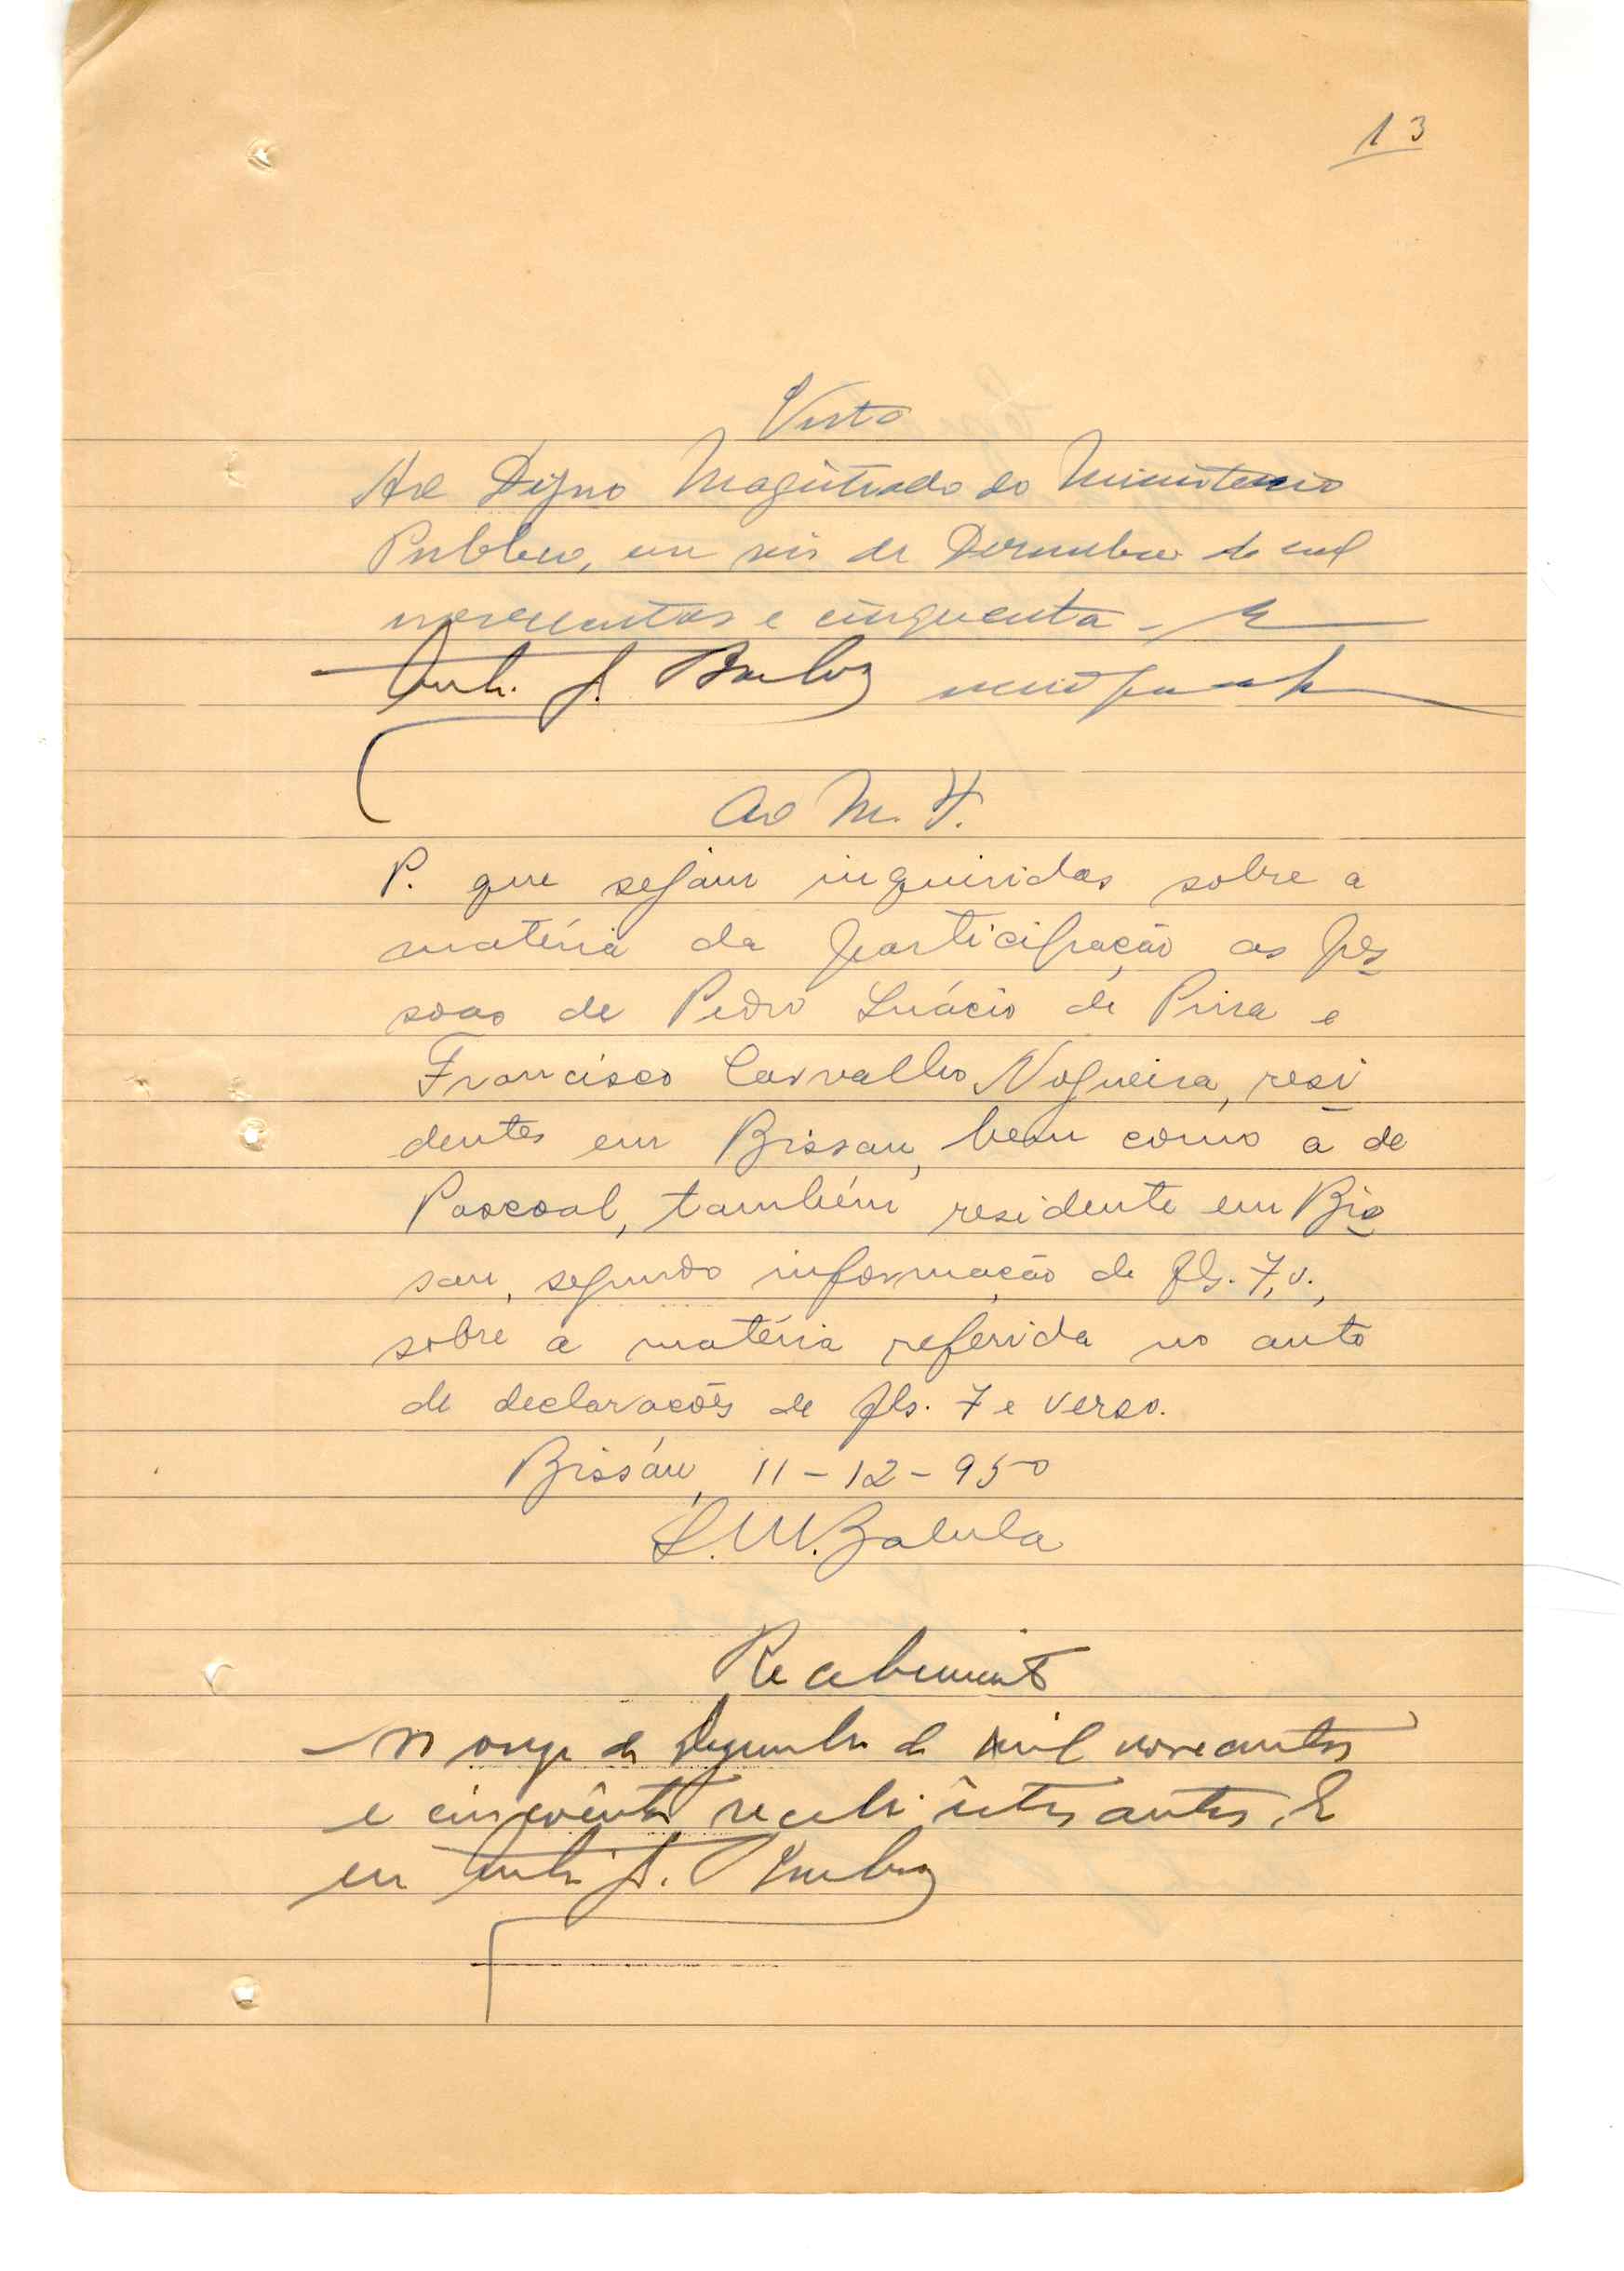 13
Vista
Ao Digno Magistrado do Ministerio
Publico, em seis de Dezembro de mil
novecentos e cinquenta. E
Ao M. P.
P. que sejam inquiridas sobre a
matéria da participação as pes
soas de Pedro Inácio de Pina e
Francisco Carvalho Nogueira, resi
dentes em Bissau, bem como a de
Pascoal, também residente em Bis
sau, segundo informação de fls. 7, v.,
sobre a matéria referida no auto
de declarações de fls. 7 e verso.
Bissau, 11-12-950
Recebimento
onze de Dezembro de mil novecentos
e cinquênta recebi êstes autos. E
eu